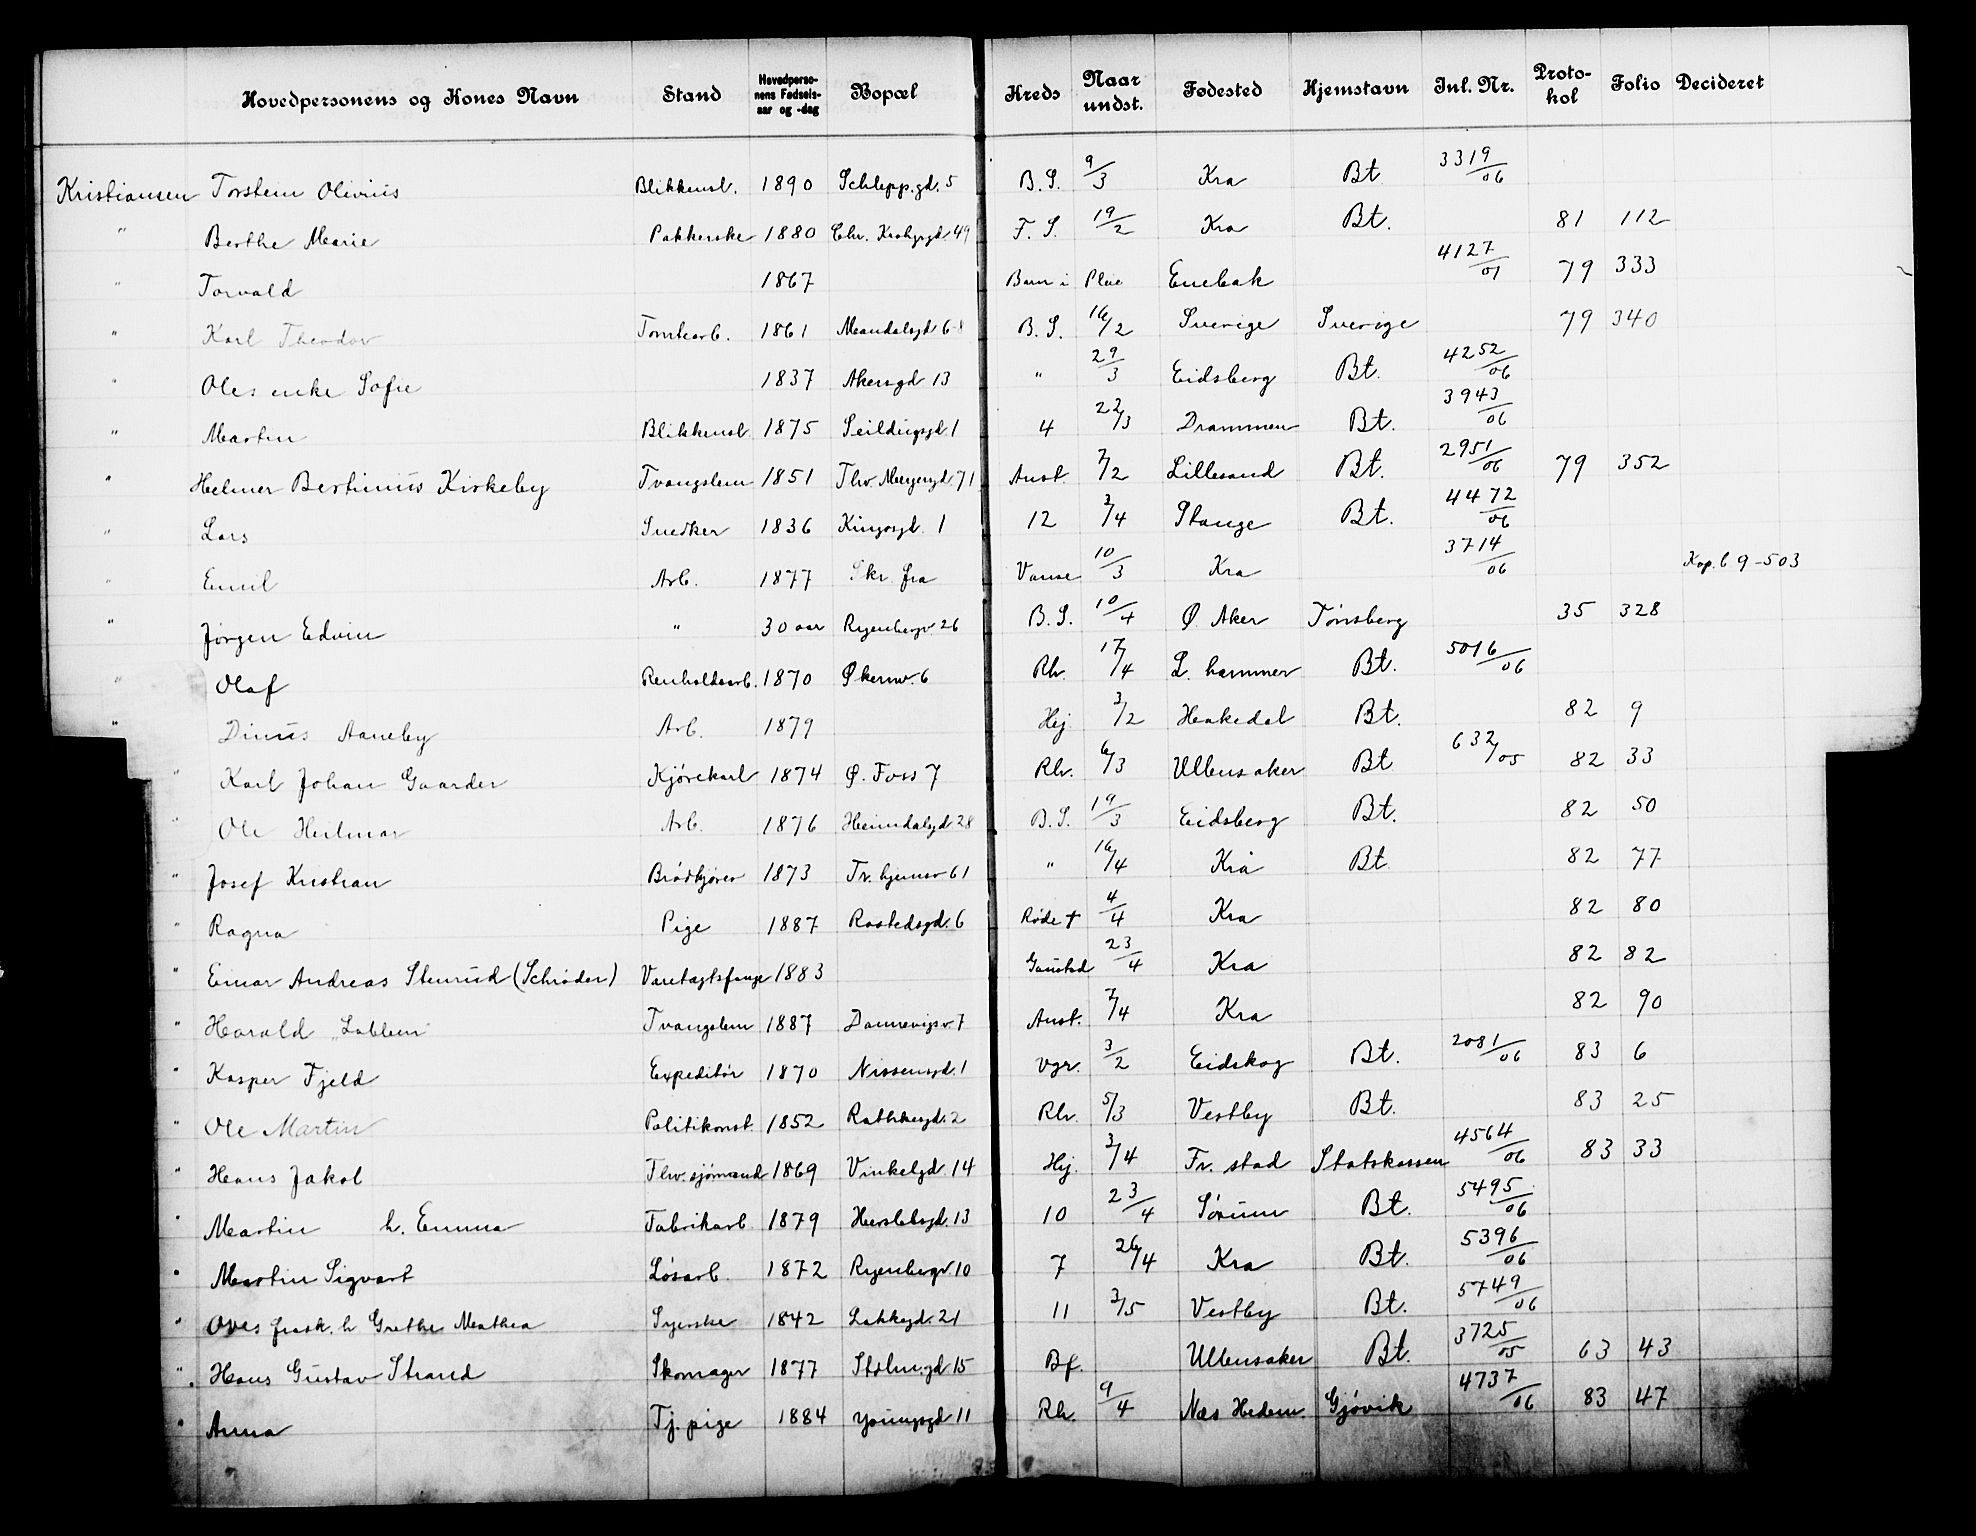 Hovedpersonens og Kones Navn Stand Hovedperso-nens Fødsels-aar og -dag Bopæl Kreds Naar undst. Fødested Hjemstavn Inl. Nr. Proto-kol Folio Decideret
Kristiansen Torstein Olivius Blikkensl. 1890 Schlepp.gd. 5 B. S. 9/3 Kra Bt 3319/06
" Berthe Marie Pakkerske 1880 Chr. Krohgsgd 49 F. S. 19/2 Kra Bt. 81 112
" Torvald 1867 Barn i Pleie Enebak 4127/01 79 333
" Karl Theodor Tomtearb. 1861 Maridalsgd 68 B. S. 16/2 Sverige Sverige 79 340
" Oles enke Sofie 1837 Akersgd 13 " 29/3 Eidsberg Bt. 4252/06
" Martin Blikkensl. 1875 Seildugsgd. 1 4 22/3 Drammen Bt. 3943/06
" Helmer Bertinius Kirkeby Tvangslem 1851 Thv. Meyersgd. 71 Anst. 7/2 Lillesand Bt. 2951/06 79 352
" Lars Snedker 1836 Kingosgt. 1 12 3/4 Stange Bt. 4472/06
" Emil Arb. 1877 Skr. fra Vanse 10/3 Kra 3714/06 Kop. b 9-503
" Jørgen Edvin " 30 aar Ryenbergv 26 B. S. 10/4 Ø. Aker Tønsberg 35 328
" Olaf Renholdsarb. 1870 Økernv. 6 Rh. 17/4 L. hammer Bt. 5016/06
" Dinus Aaneby Arb. 1879 Hej 3/2 Hakedal Bt. 82 9
" Karl Johan Gaarder Kjørekarl 1874 Ø. Foss 7 Rh. 6/3 Ullensaker Bt 632/05 82 33
" Ole Hilmar Arb. 1876 Heimdalsgd 28 B. S. 19/3 Eidsberg Bt. 82 50
" Josef Kristian Brødkjører 1873 Tr. hjemsv 61 " 16/4 Kra Bt 82 77
" Ragna Pige 1887 Rostedsgd. 6 Røde † 4/4 Kra 82 80
" Einar Andreas Stenrud (Schrøder) Varetægtsfange 1883 Gaustad 23/4 Kra 82 82
" Harald "Lablem" Tvangslem 1887 Dannevigsv. 7 Anst. 7/4 Kra 82 90
" Kasper Fjeld Expeditør 1870 Nissensgd. 1 Vgr. 3/2 Eidskog Bt. 2081/06 83 6
" Ole Martin Politikonst. 1852 Rathkesgd. 2 Rh. 5/3 Vestby Bt. 83 25
" Hans Jakob Thv. sjømand 1869 Vinkelgd. 14 Hj. 3/4 Fr. stad Statskassen 4564/06 83 33
" Martin h. Emma Fabrikarb 1879 Herslebsgd. 13 10 23/4 Sørum Bt. 5495/06
" Martin Sigvart Løsarb. 1872 Ryenbergv. 10 7 26/4 Kra Bt. 5396/06
" Oves frask. h Grethe Mathea Syerske 1842 Lakkegd. 21 11 3/5 Vestby Bt. 5749/06
" Hans Gustav Strand Skomager 1877 Stolm.gd. 15 Bf. Ullensaker Bt. 3725/05 63 43
" Anna Tj. pige 1884 Youngsgd 11 Rh. 9/4 Næs Hedem. Gjøvik 4737/06 83 47